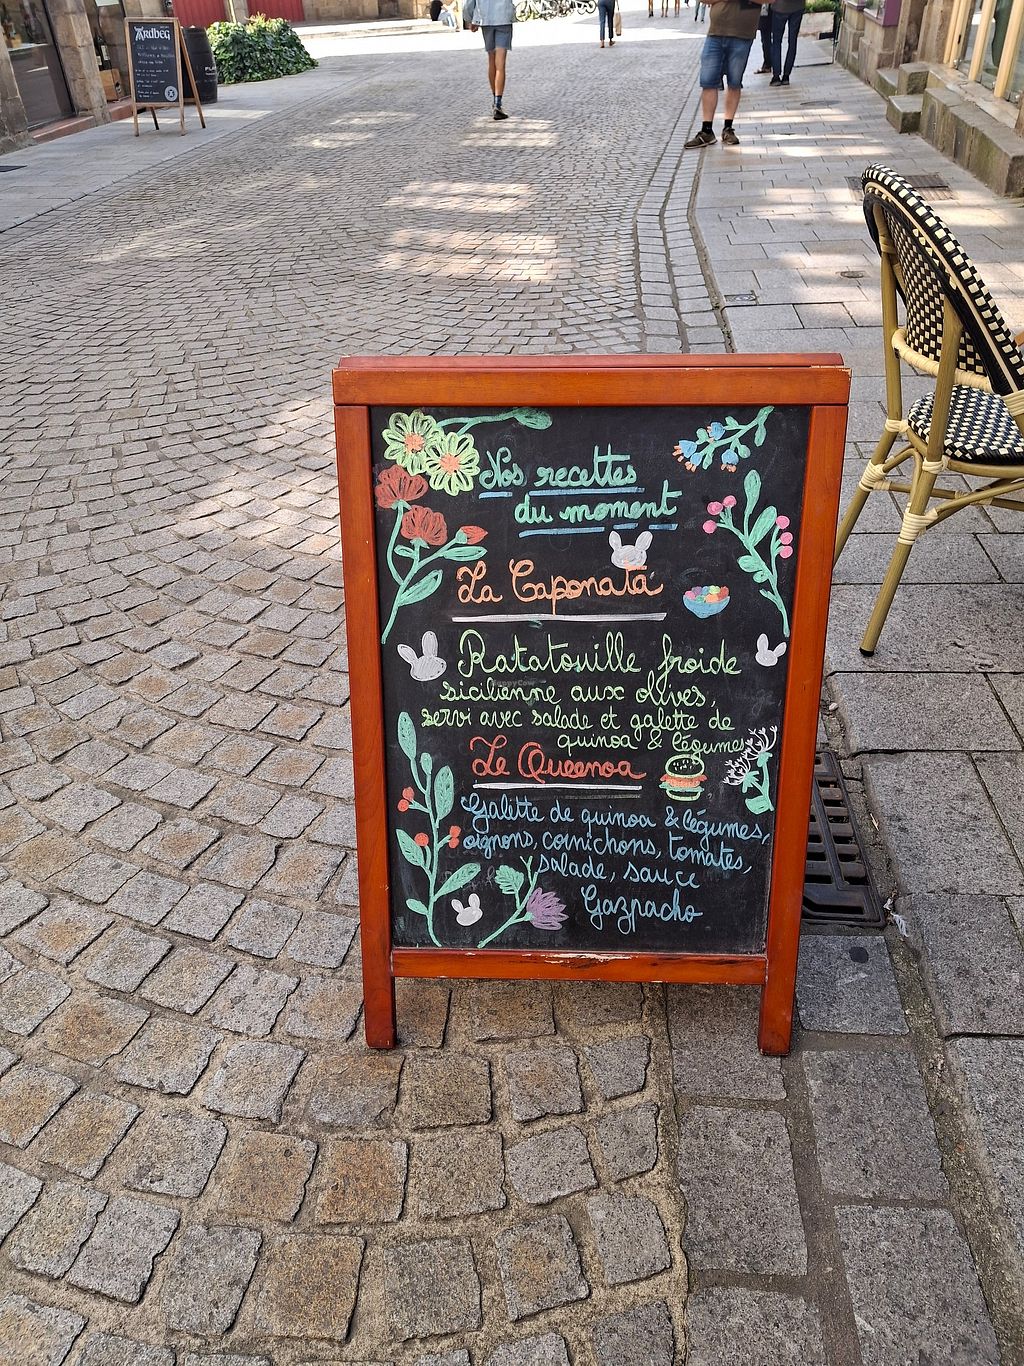 Ardbeg
Nos recettes
du moment
La Caponata
Ratatouille froide
sicilienne aux olives,
servi avec salade et galette de
quinoa & légumes
Le Queenoa
Galette de quinoa & légumes,
oignons, cornichons, tomates,
salade, sauce
Gazpacho
HappyCow